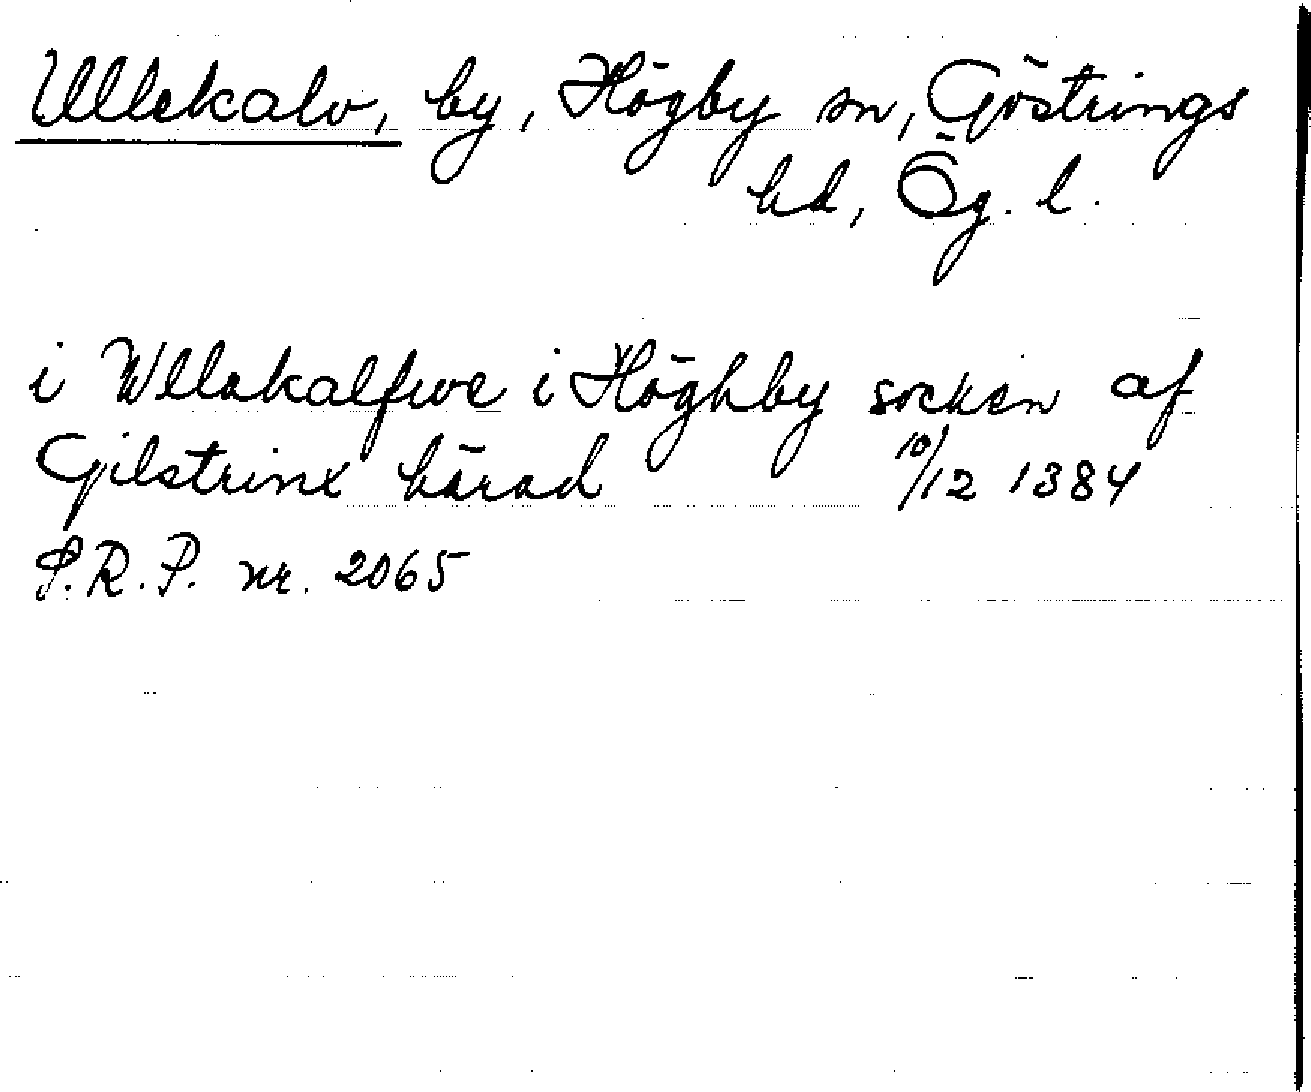 Ullekalv, by, Högby sn, Göstrings
hd, Ög. l.
i Wllakalfwe i Höghby sockn af
Gilstrinx härad 10/12 1384
S.R.P. nr. 2065